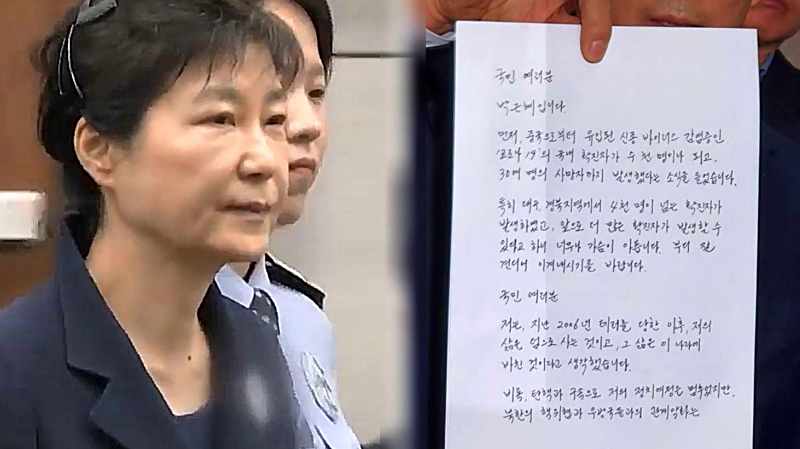 국민 여러분
박근혜입니다.
먼저, 중국으로부터 유입된 신종 바이러스 감염증인
'코로나 19'의 국내 확진자가 수 천 명이나 되고,
30여 명의 사망자까지 발생했다는 소식을 들었습니다.
특히 대구·경북지역에서 4천 명이 넘는 확진자가
발생하였고, 앞으로 더 많은 확진자가 발생할 수
있다고 하니 너무나 가슴이 아픕니다. 부디 잘
견디어 이겨내시기를 바랍니다.
국민 여러분
저는, 지난 2006년 테러를 당한 이후, 저의
삶은 덤으로 사는 것이고, 그 삶은 이 나라에
바친 것이라고 생각했습니다.
비록, 탄핵과 구속으로 저의 정치여정은 멈추었지만,
북한의 핵위협과 우방국들과의 관계악화는